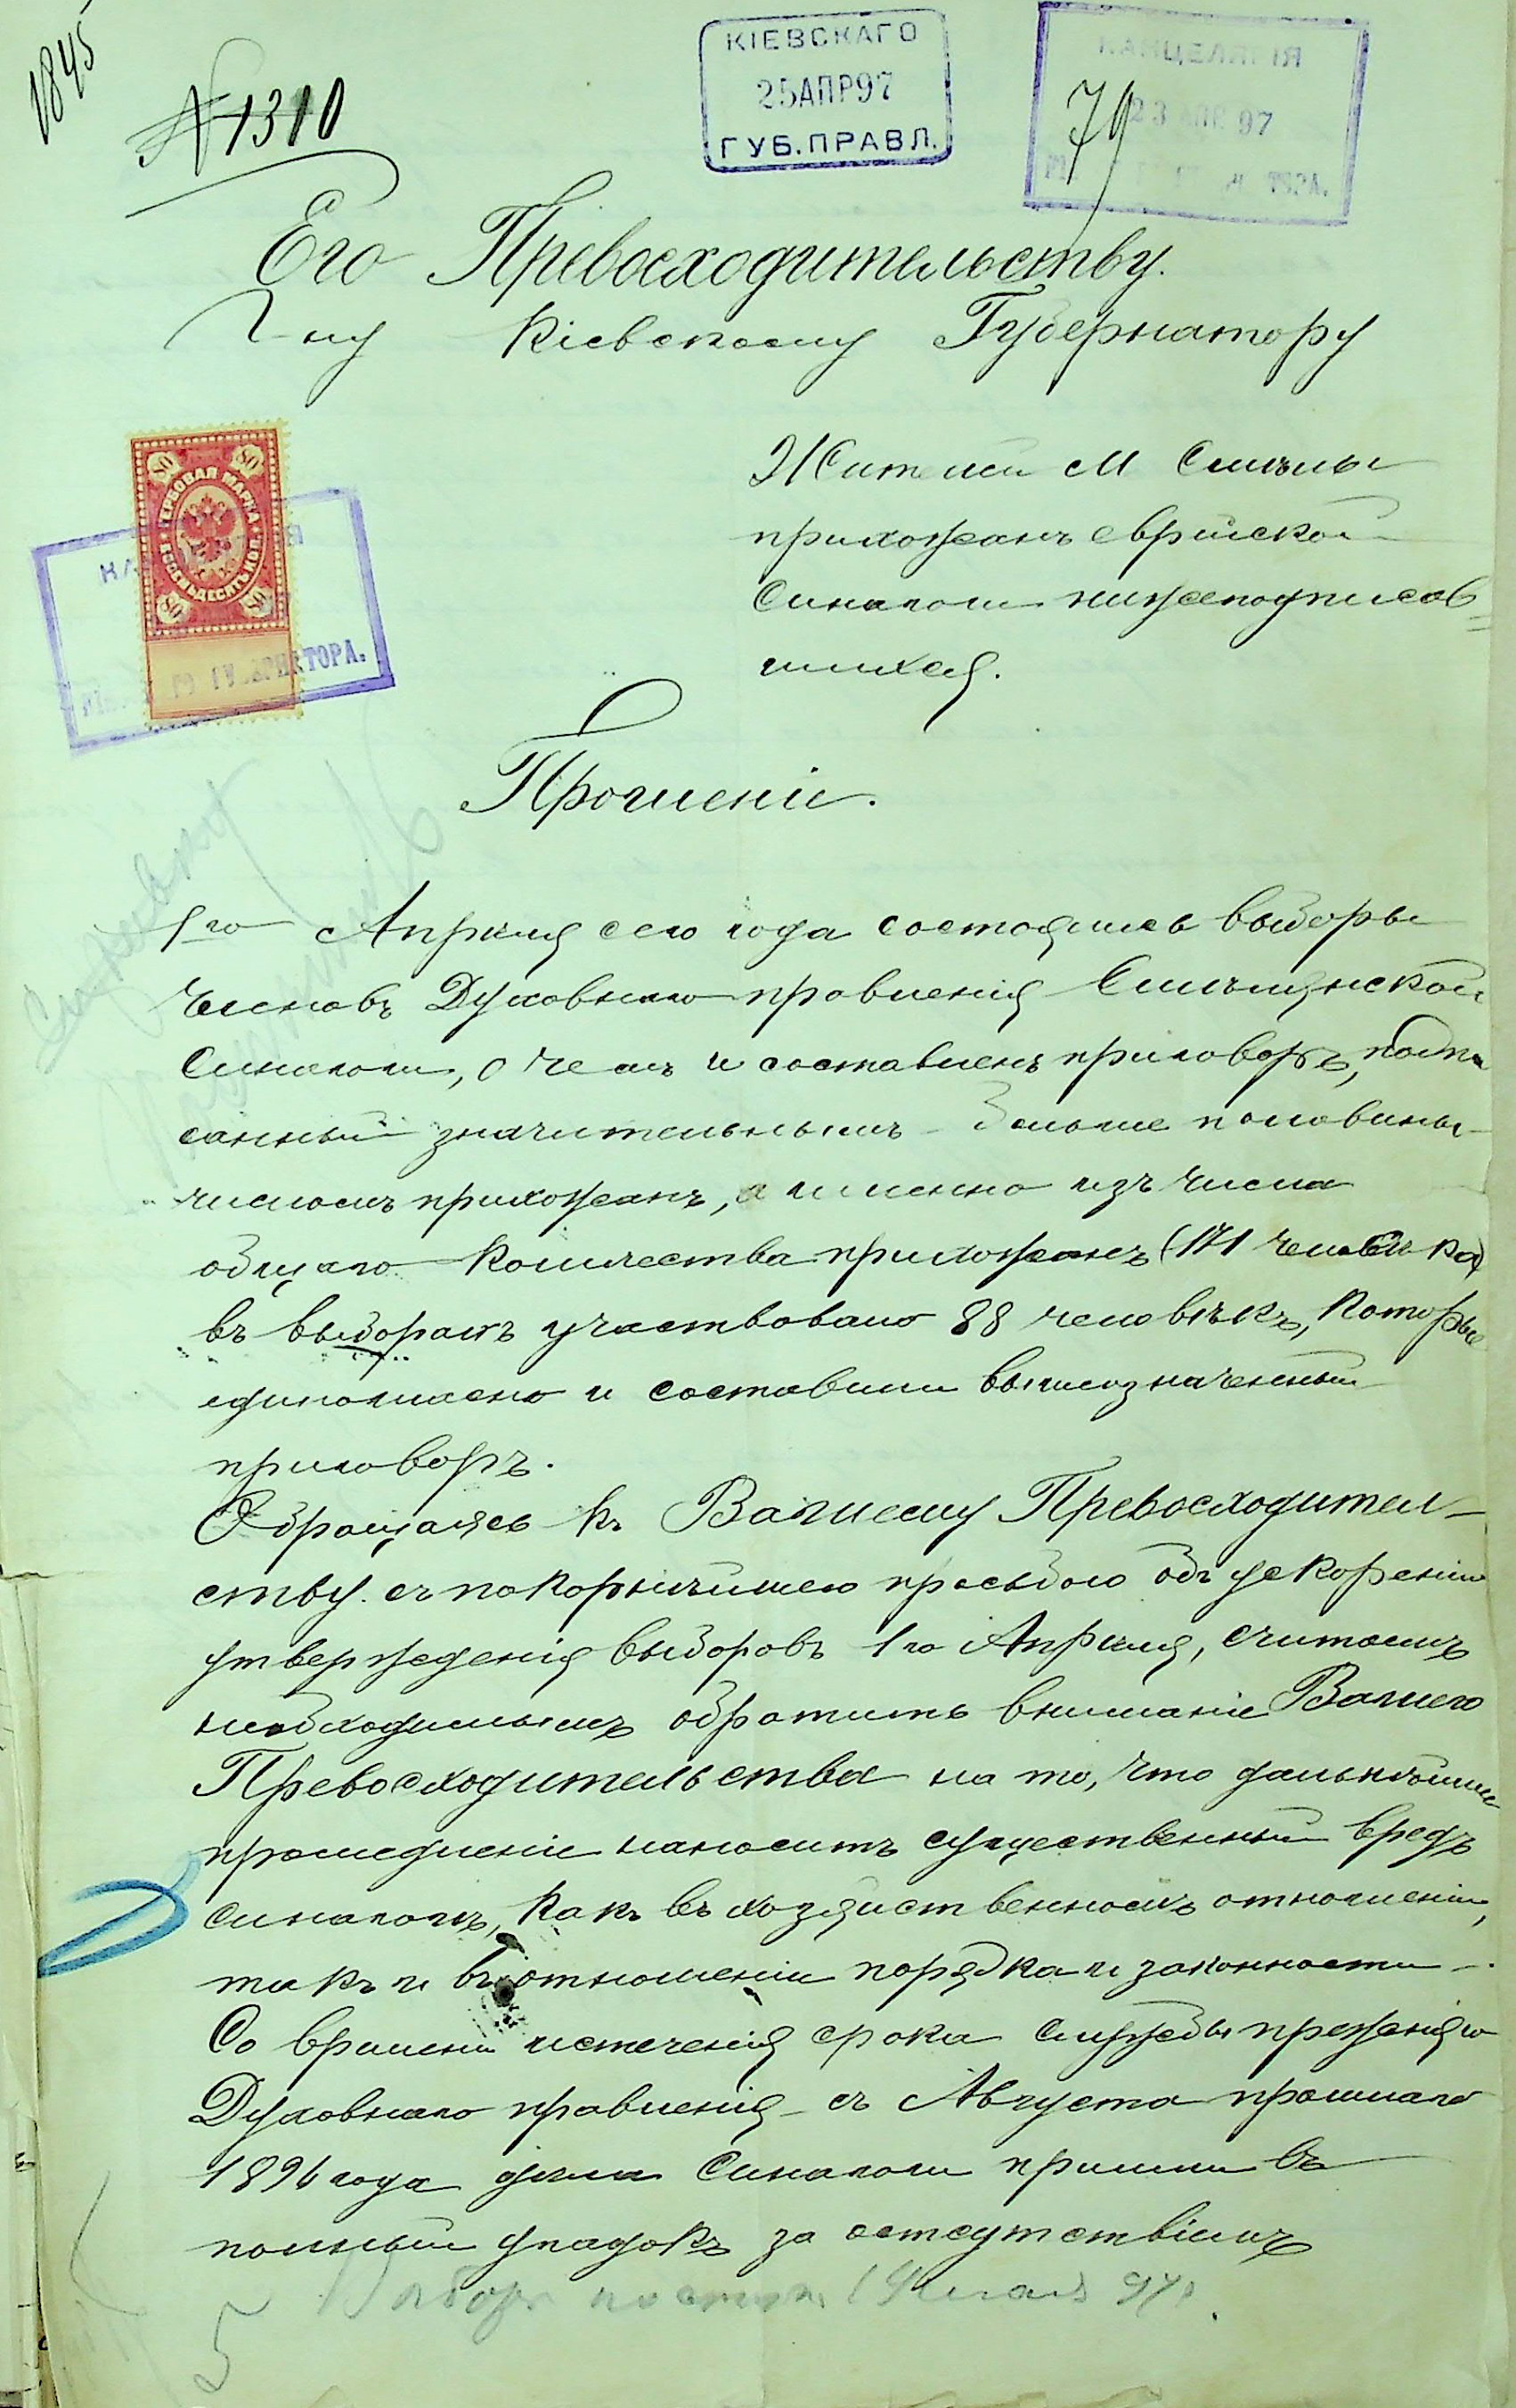 1845
№ 1310
КІЕВСКАГО
25 АПР 97
ГУБ. ПРАВЛ.
КАНЦЕЛЯРІЯ
23 АПР 97
79
Его Превосходительству.
Г-ну Кіевскому Губернатору
ГЕРБОВАЯ МАРКА
ВОСЕМЬДЕСЯТЪ КОП.
80
80
80
80
Жителей М Смѣлы
прихожанъ еврейской
Синагоги нижеподписав=
шихся.
Прошеніе.
1го Апрѣля сего года состоялись выборы
членовъ Духовнаго правленія Смѣлянской
Синагоги, о чемъ и составленъ приговоръ, подпи
санный значительнымъ - больше половины -
числомъ прихожанъ, а именно изъ числа
общаго количества прихожанъ (171 человѣка)
въ выборахъ участвовало 88 человѣкъ, которые
единогласно и составили вышеозначенный
приговоръ.
Обращаясь къ Вашему Превосходител-
ству. съ покорнѣйшею просьбою объ ускореніи
утвержденія выборовъ 1го Апрѣля, считаемъ
необходимымъ обратить вниманіе Вашего
Превосходительства на то, что дальнѣйшее
промедленіе наноситъ существенный вредъ
синагогѣ, какъ въ хозяйственномъ отношеніи,
такъ и въ отношеніи порядка и законности.
Со времени истеченія срока службы прежняго
Духовнаго правленія - съ Августа прошлаго
1896 года дѣла Синагоги пришли въ
полный упадокъ за остсутствіемъ
5